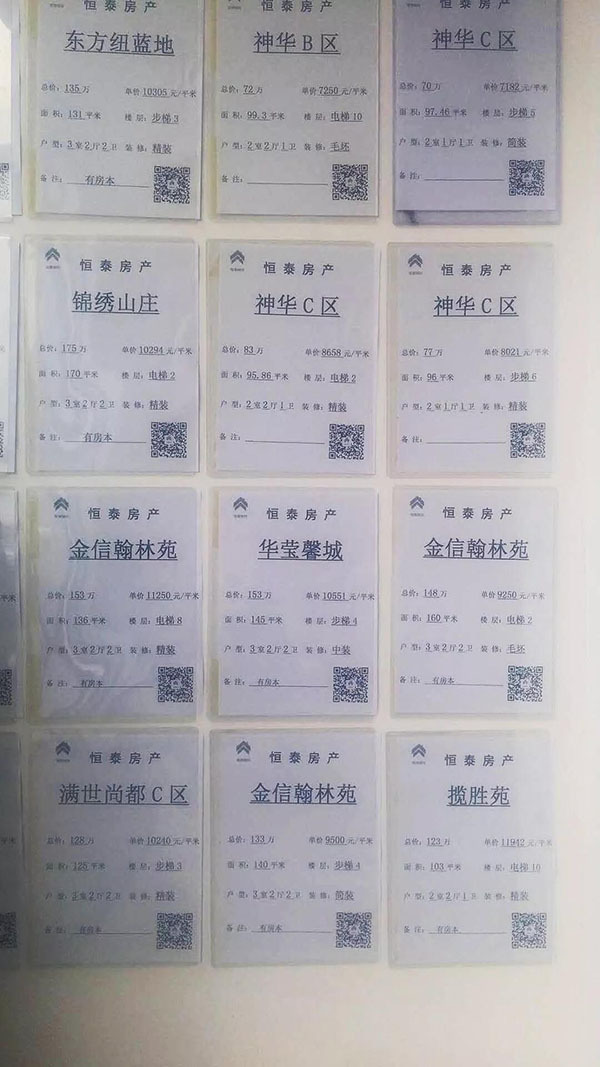 东方纽蓝地
总价：135万 单价10305元/平米
面积：131平米 楼层：步梯3
户型：3室2厅2卫 装修：精装
备注： 有房本
神华B区
总价：72万 单价7250元/平米
面积：99.3平米 楼层：电梯10
户型：2室2厅1卫 装修：毛坯
备注：
神华C区
总价：70万 单价7182元/平米
面积：97.46平米 楼层：步梯5
户型：2室1厅1卫 装修：简装
备注：
恒泰房产
锦绣山庄
总价：175万 单价10294元/平米
面积：170平米 楼层：电梯2
户型：3室2厅2卫 装修：精装
备注： 有房本
恒泰房产
神华C区
总价：83万 单价8658元/平米
面积：95.86平米 楼层：电梯2
户型：2室2厅1卫 装修：精装
备注：
恒泰房产
神华C区
总价：77万 单价8021元/平米
面积：96平米 楼层：步梯6
户型：2室1厅1卫 装修：精装
备注：
恒泰房产
金信翰林苑
总价：153万 单价11250元/平米
面积：136平米 楼层：电梯8
户型：3室2厅2卫 装修：精装
备注： 有房本
恒泰房产
华莹馨城
总价：153万 单价10551元/平米
面积：145平米 楼层：步梯4
户型：3室2厅2卫 装修：中装
备注： 有房本
恒泰房产
金信翰林苑
总价：148万 单价9250元/平米
面积：160平米 楼层：电梯2
户型：3室2厅2卫 装修：毛坯
备注： 有房本
恒泰房产
满世尚都C区
总价：128万 单价10240元/平米
面积：125平米 楼层：步梯3
户型：3室2厅2卫 装修：精装
备注： 有房本
恒泰房产
金信翰林苑
总价：133万 单价9500元/平米
面积：140平米 楼层：步梯4
户型：3室2厅2卫 装修：简装
备注： 有房本
恒泰房产
揽胜苑
总价：123万 单价11942元/平米
面积：103平米 楼层：电梯10
户型：2室2厅1卫 装修：精装
备注： 有房本